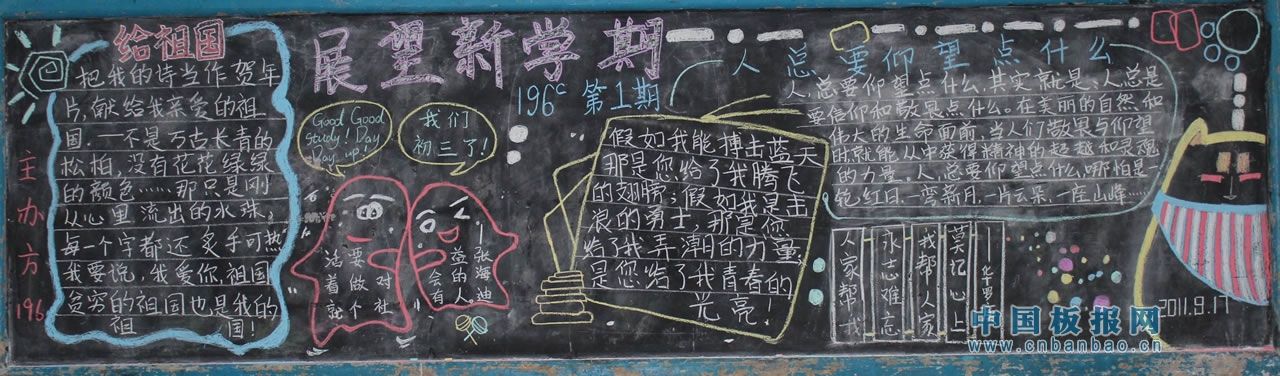 给祖国
把我的诗当作贺年
片,献给我亲爱的祖
国.一不是万古长青的
松柏,没有花花绿绿
的颜色……那只是刚
从心里流出的水珠,
每一个字都还炙手可热
我要说,我爱你,祖国
贫穷的祖国也是我的
祖国!
主办方196
展望新学期
196c 第1期
Good Good
Study! Day
Day up!
我们
初三了!
活着就
要做个
对社
会有
益的人。
——张海迪
假如我能搏击蓝天
那是您给了我腾飞
的翅膀;假如我是击
浪的勇士,那是你
给了我弄潮的力量,
是您给了我青春的
光亮!
人总要仰望点什么
人总要仰望点什么,其实就是,人总是
要信仰和敬畏点什么。在美丽的自然和
伟大的生命面前,当人们敬畏与仰望
时就能从中获得精神的超越和灵魂
的力量,人总要仰望点什么,哪怕是一
轮红日.一弯新月.一片云朵.一座山峰……
人家帮我
永志难忘
我帮人家
莫记心上
华罗
2011.9.17
中国板报网
www.cnbanbao.cn